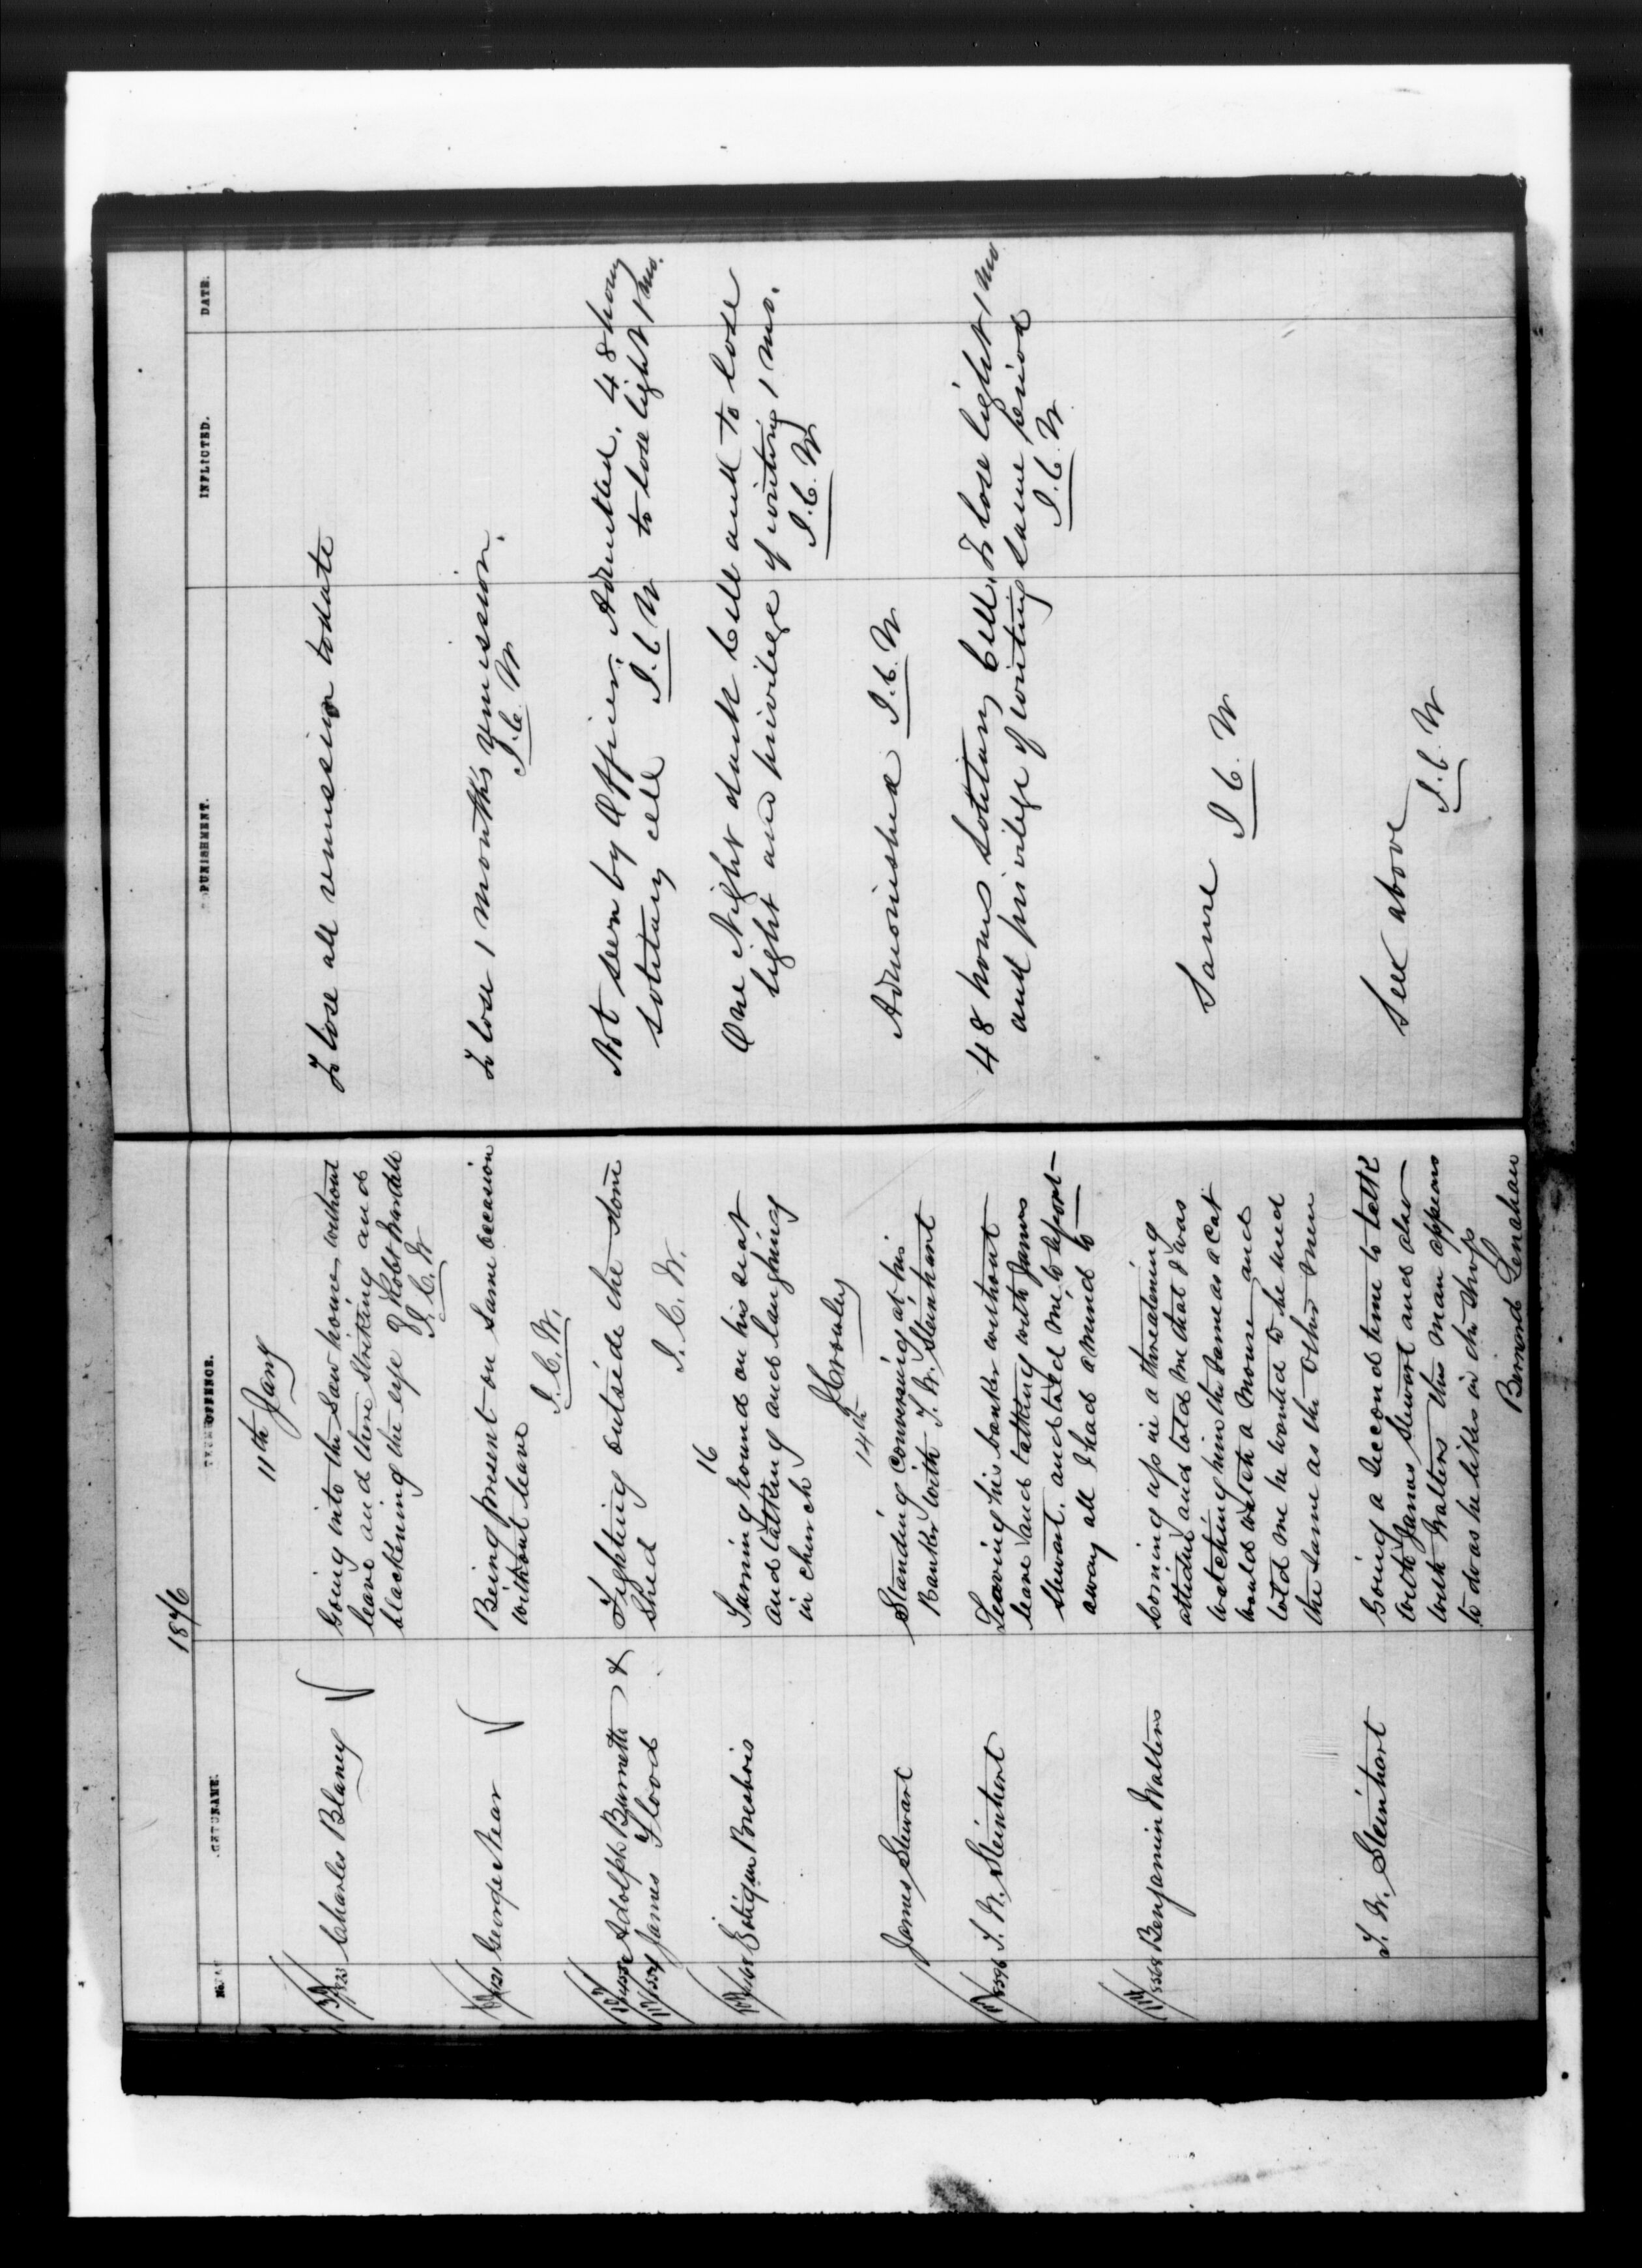 1876
No.
NAME.
OFFENCE.
PUNISHMENT.
INFLICTED.
DATE.
11th Jany
Charles Blaney
Going into the Saw house without
leave and there striking and
blackening the eye of Robt
I. C. W
To lose all remission to date
George Near
Being present on same occasion
without leave
I. C. W.
To lose 1 month's remission.
I. C. W
Adolph Burnette &
James Flood
Fighting outside the stone
Shed
I. C. W.
Not seen by Officer. Admitted. 48 hours
solitary cell I. C. W to lose light 1 mo.
16
Turning round on his seat
and talking and laughing
in church
J Crowley
One Night dark Cell and to lose
light and privilege of writing 1 mo.
I. C. W
14th
James Stewart
Standing conversing at his
Banker with T. W. Steinhart
Admonished I. C. W
5596 T. W. Steinhart
Leaving his banker without
leave and talking with James
Stewart. and told me to report
away all I had a mind to
48 hours Solitary Cell. To lose light 1 mo
and privilege of writing same period
I. C. W
5565 Benjamin Walters
Coming up in a threatening
attidud and told me that I was
watching him the same as a cat
would watch a mouse and
told me he wanted to be used
the same as the other men
Same I C. W
T. W. Steinhart
Going a second time to talk
with James Stewart and also
with Walters this man appears
to do as he likes in the shops
Bernard Lenahan
See above
I. C. W